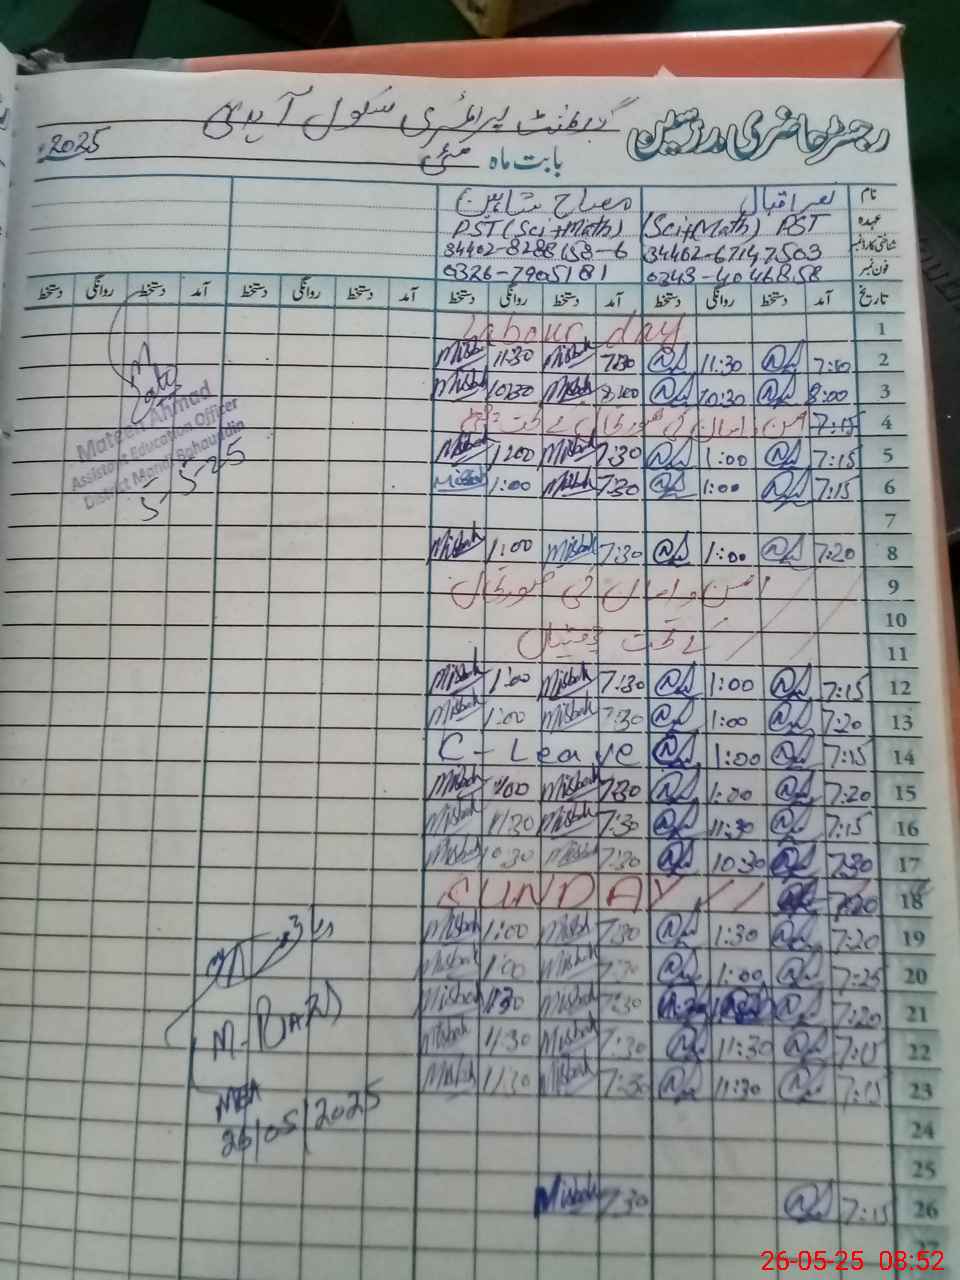 رجسٹر حاضری مدرسین گورنمنٹ پرائمری سکول آیدی
بابت ماہ مئی 2025
نام
مصباح شاہین
عہدہ (Sci+Math) PST PST (Sci+Math)
شناختی کارڈ نمبر 34402-6714 34402-8288158-6
فون نمبر 0343-4046858 0326-7905181
تاریخ آمد دستخط روانگی دستخط آمد دستخط روانگی دستخط آمد دستخط روانگی دستخط آمد دستخط روانگی دستخط
1 Labour day
2 11:30 7:30 Misbah 11:30 Misbah
3 8:00 10:30 8:00 Misbah 10:30 Misbah
4 7:15
5 7:15 1:00 7:30 Misbah 1:00 Misbah
6 7:15 1:00 7:30 Misbah 1:00 Misbah
7
8 7:20 1:00 7:30 Misbah 1:00 Misbah
9 امن و امان کی صورتحال
10
11 کے تحت چھٹیاں
12 7:15 1:00 7:30 Misbah 1:00 Misbah
13 7:20 1:00 7:30 Misbah 1:00 Misbah
14 7:15 1:00 C-Leave
15 7:20 1:00 7:30 Misbah 1:00 Misbah
16 7:15 11:30 7:30 Misbah 11:30 Misbah
17 7:30 10:30 7:30 Misbah 10:30 Misbah
18 7:20 SUNDAY
19 7:20 1:30 7:30 Misbah 1:00 Misbah
20 7:25 1:00 Misbah 1:00 Misbah
21 7:20 7:30 Misbah Misbah
22 7:15 11:30 7:30 Misbah 11:30 Misbah
23 7:15 11:30 7:30 Misbah 11:30 Misbah
24
25
26 7:15 7:30 Misbah
27
Mateen Ahmad
Assistant Education Officer
District Mandi Bahauddin
5-5-25
MEA
26/05/2025
26-05-25 08:52